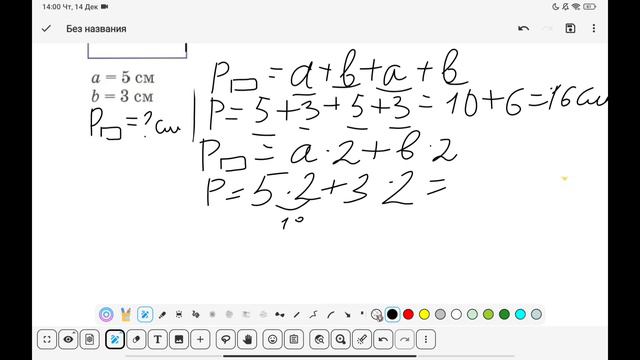 14:00 Чт, 14 Дек
Без названия
a = 5 см
b = 3 см
P▭ = ? см
P▭ = a + b + a + b
P = 5 + 3 + 5 + 3 = 10 + 6 = 16 см
P▭ = a · 2 + b · 2
P = 5 · 2 + 3 · 2 =
10